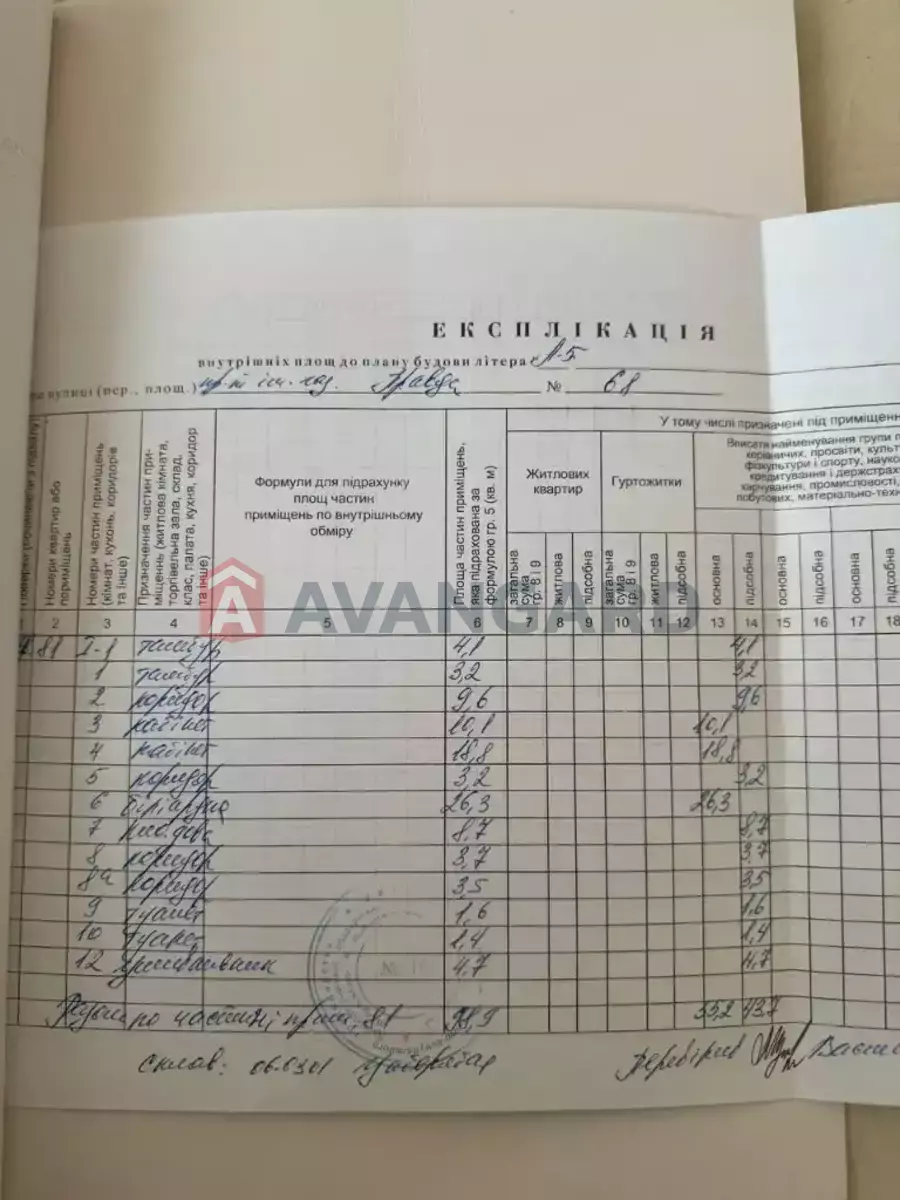 ЕКСПЛІКАЦІЯ
внутрішніх площ до плану будови літера А-5
вулиці (пер., площ.) пр-т ім. газ. Правда № 68
Номери квартир або приміщень
Номери частин приміщень (кімнат, кухонь, коридорів та інше)
Призначення частин приміщень (житлова кімната, торгівельна зала, склад, клас, палата, кухня, коридор та інше)
Формули для підрахунку площ частин приміщень по внутрішньому обміру
Площа частин приміщень, яка підрахована за формулою гр. 5 (кв. м)
У тому числі призначені під приміщенн
Житлових квартир
Гуртожитки
Вписати найменування групи п
керівничих, просвіти, культ
фізкультури і спорту, науко
кредитування і держстрах
харчування, промисловості,
побутових, матеріально-техн
загальна сума гр. 8 і 9
житлова
підсобна
загальна сума гр. 8 і 9
житлова
підсобна
основна
підсобна
основна
підсобна
основна
підсобна
AVANGARD
1 2 3 4 5 6 7 8 9 10 11 12 13 14 15 16 17 18
1 81 I-1 тамбур 4,1 4,1
1 тамбур 3,2 3,2
2 коридор 9,6 9,6
3 кабінет 10,1 10,1
4 кабінет 18,8 18,8
5 коридор 3,2 3,2
6 більярдна 26,3 26,3
7 8,7 8,7
8 коридор 3,7 3,7
8а коридор 3,5 3,5
9 туалет 1,6 1,6
10 туалет 1,4 1,4
12 4,7 4,7
Разом по частині прим. 81 98,9 55,2 43,7
склав: 06.03.01
Перевірив